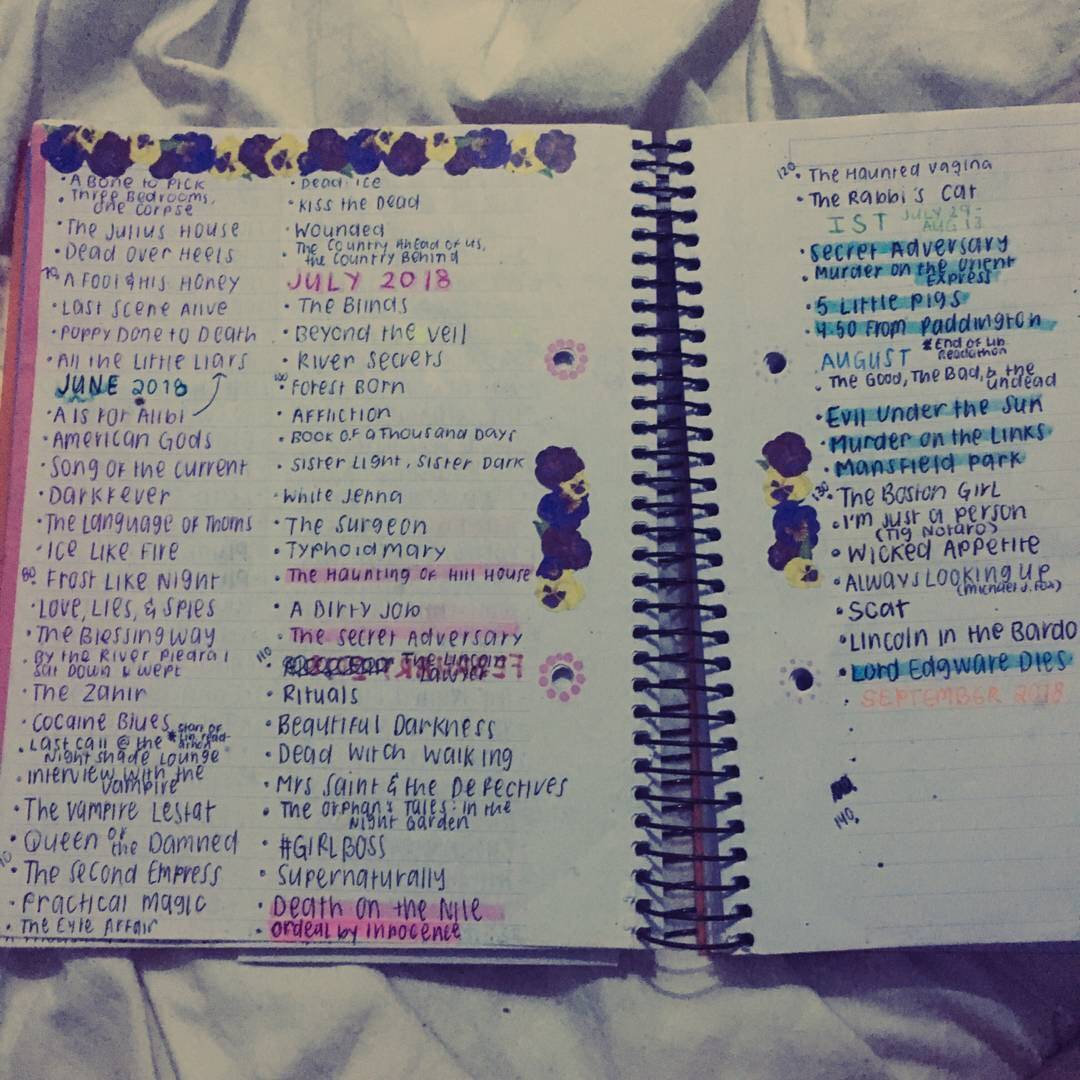 • A Bone to Pick
• Three Bedrooms,
one Corpse
• The Julius House
• Dead Over Heels
70 • A Fool & His Honey
• Last Scene Alive
• Poppy Done to Death
• All the Little Liars
JUNE 2018
• A Is For Alibi
• American Gods
• Song of the Current
• Darkfever
• The Language of Thorns
• Ice Like Fire
80 • Frost Like Night
• Love, Lies, & Spies
• The Blessing Way
• By the River Piedra I
Sat Down & Wept
• The Zahir
• Cocaine Blues
* Start of
Lib readathon
• Last Call @ the
Nightshade Lounge
• Interview with the
Vampire
• The Vampire Lestat
• Queen of the Damned
• The Second Empress
• Practical Magic
• The Eyre Affair
• Dead Ice
• Kiss the Dead
• Wounded
• The Country Ahead of Us,
the Country Behind
JULY 2018
• The Blinds
• Beyond the Veil
• River Secrets
100 • Forest Born
• Affliction
• Book of a Thousand Days
• Sister Light, Sister Dark
• White Jenna
• The Surgeon
• Typhoid Mary
• The Haunting of Hill House
• A Dirty Job
• The Secret Adversary
110 • The Unseen
• Rituals
• Beautiful Darkness
• Dead Witch Walking
• Mrs Saint & the Defectives
• The Orphan's Tales: In the
Night Garden
• #GIRLBOSS
• Supernaturally
• Death on the Nile
• Ordeal by Innocence
120 • The Haunted Vagina
• The Rabbi's Cat
IST JULY 29-
AUG 12
• Secret Adversary
• Murder on the Orient
Express
• 5 Little Pigs
• 4:50 From Paddington
AUGUST * End of Lib
Readathon
• The Good, The Bad, & the
Undead
• Evil Under the Sun
• Murder on the Links
• Mansfield Park
130 • The Boston Girl
• I'm Just a Person
(Tig Notaro)
• Wicked Appetite
• Always Looking Up
(Michael J. Fox)
• Scat
• Lincoln in the Bardo
• Lord Edgware Dies
SEPTEMBER 2018
140